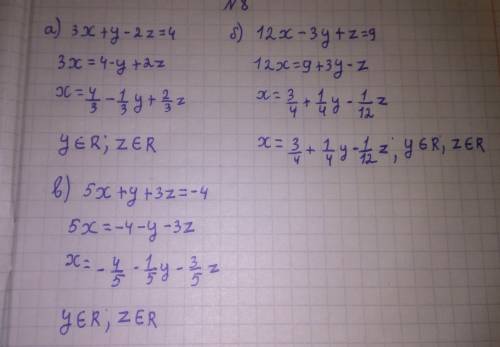 №8
а) 3x+y-2z=4
3x=4-y+2z
x=4/3-1/3y+2/3z
y∈R; z∈R
б) 12x-3y+z=9
12x=9+3y-z
x=3/4+1/4y-1/12z
x=3/4+1/4y-1/12z; y∈R; z∈R
в) 5x+y+3z=-4
5x=-4-y-3z
x=-4/5-1/5y-3/5z
y∈R; z∈R